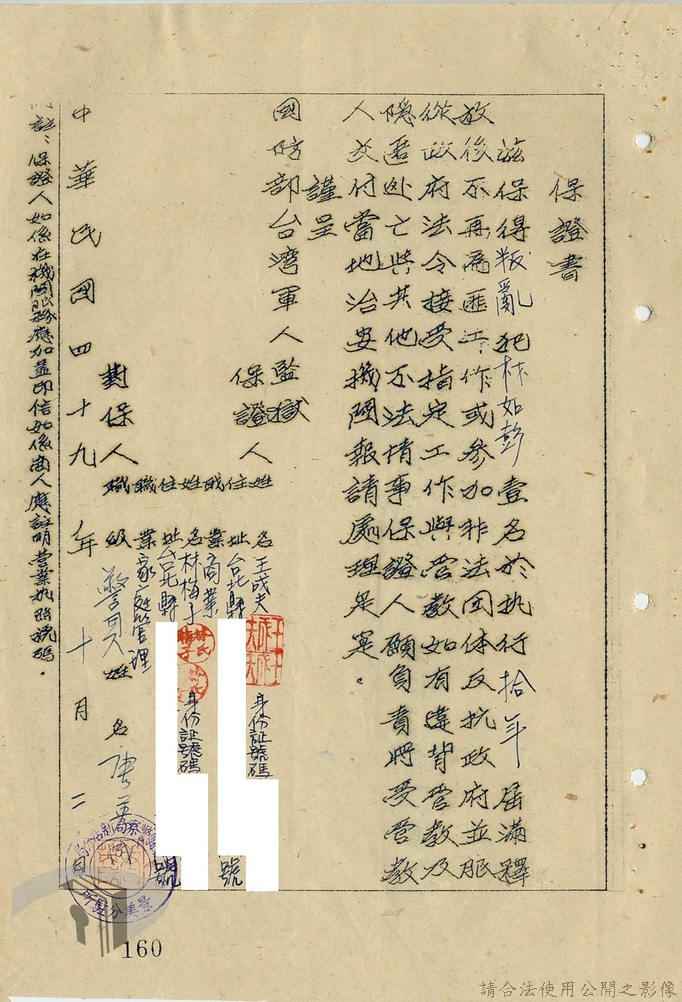 保證書
茲保得叛亂犯林如彭壹名於执行拾年屆滿釋
放後不再為匪工作或參加非法团体反抗政府並服
從政府法令接受指定工作與管教如有違背管教及
隱匿逃亡與其他不法情事保證人願負責將受管教
人交付當地治安機関報請處理是寔。
謹呈
國防部台湾軍人監獄
保證人
姓名王成夫
住址台北縣 身份証號碼 號
职業商業
姓名林梅子
住址台北縣 身份証號碼 號
職業家庭管理
對保人
職級警員姓名
中華民国四十九年十月二日
附註：保證人如係在機関服務應加盖印信如係商人應註明营業执照號碼。
景美分駐所
160
請合法使用公開之影像